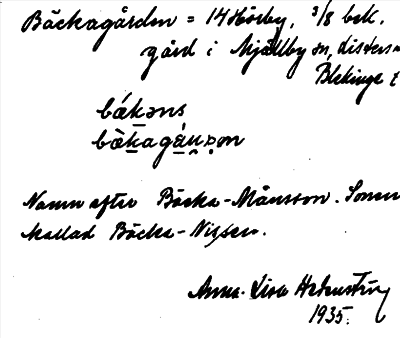 Bäckagården = 14 Hörby, 3/8 bek.
gård i Mjällby sn, Listers
Blekinge
bákəns
Namn efter Bäcka-Månsson. Sonen
kallad Bäcka-Nissen.
Anna-Lisa
1935.